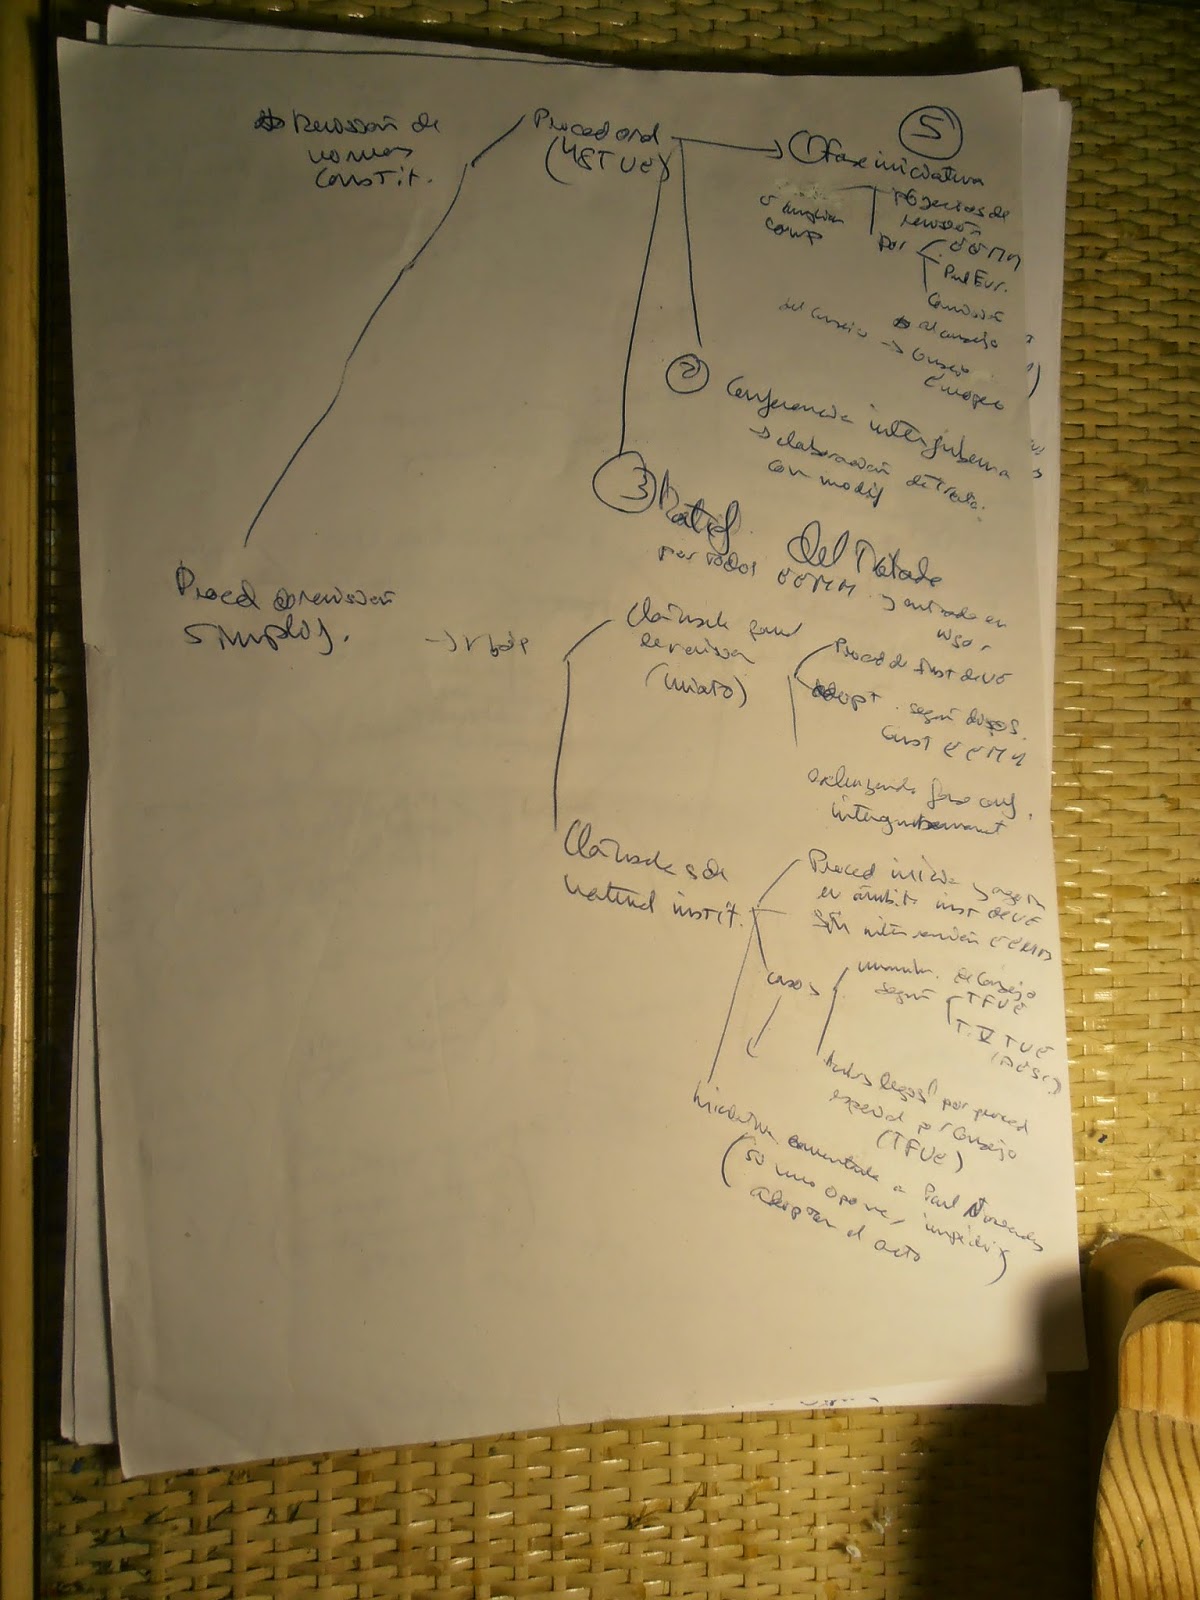 5
Revisión de
normas
constit.
Proced ord
(48 TUE)
① Fase iniciativa
proyectos de
revisión
por
EEMM
Parl Eur.
Comisión
al consejo
del Consejo → Consejo
Europeo
comp
② Conferencia interguberna
→ elaboración de Trata.
con modif
③ Ratif. del Tratado
por todos EEMM y entrada en
vigor
Proced revisión
simplif.
→
Cláusula gral
revisión
(mixto)
Proced de Inst de UE
adopt. según dispos.
Const EEMM
fase conf.
intergubernament
Cláusulas de
natural instit.
Proced inicia y
en ámbito inst de UE
sin intervención EEMM
casos
unanim. Consejo
según
TFUE
T. V TUE
(PESC)
Actos legisl por proced
especial por Consejo
(TFUE)
Iniciativa a Parl Nacionales
(si uno opone, impedir
adoptar el acto)